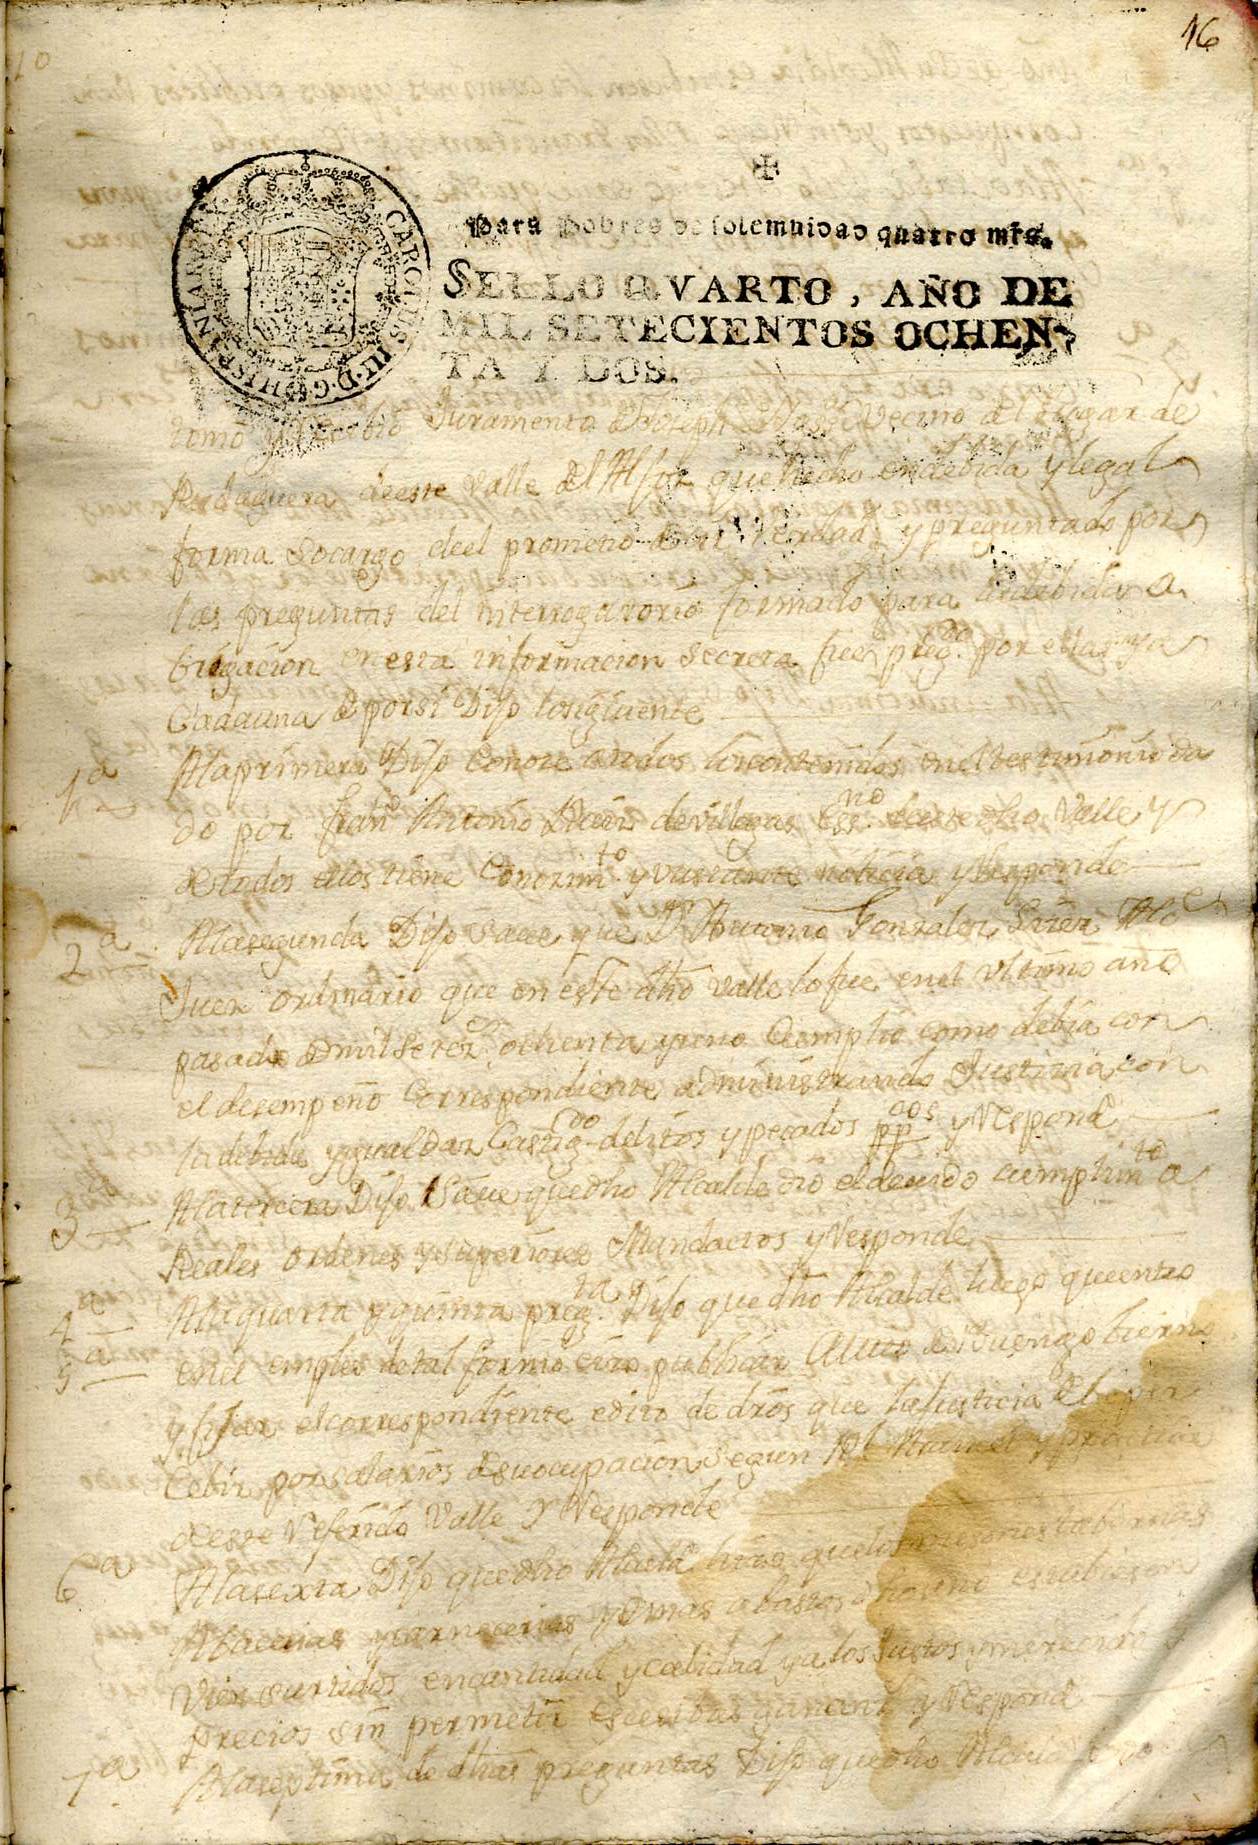 16
CAROLUS III D G HISPANIAR REX
Para Pobres de solemnidad quatro mrs.
SELLO QVARTO, AÑO DE
MIL SETECIENTOS OCHEN-
TA Y DOS.
tomó y Recibió Juramento de Joseph Vecino del Lugar de
de este Valle del Alfoz que hecho en debida y legal
forma Socargo de el prometió decir Verdad y preguntado por
las preguntas del Interrogatorio formado para la debida a
briguacion en esta informacion Secreta fue preg.do por ellas y a
Cada una de por si Dijo lo sigiuente
1a A la primera Dijo Conoce a todos los contenidos en el testimonio da
do por Fran.co Antonio de Villegas Ess.no de este dho Valle y
de todos ellos tiene Conozim.to y vastante noticia y Responde
2a A la segunda Dijo Save que Dn Antonio Gonzalez Alc.e
Juez ordinario que en este dho Valle lo fue en el Ultimo año
pasado de mil Setez.s ochenta y uno Cumplio como debia con
el desempeño Correspondiente administrando Justicia con
la debida ygualdaz Castig.do delitos y pecados pp.cos y Respond.e
3a A la tercera Dijo Save que dho Alcalde dio el devido cumplim.to a
Reales ordenes y superiores Mandatos y Responde
4a A la quarta y quinta preg.ta Dijo que dho Alcalde luego que entro
5a en el empleo de tal formó e hizo publicar Auto de Buen gobierno
y fijar el correspondiente edito de dros que la Justicia debe per
cebir por salarios de su ocupacion Segun Rl Aranzel y practica
de este Referido Valle y Responde
6a A la sexta Dijo que dho Alcalde hizo que los mesones tabernas
Abacerias y carnecerias y demas abastos estubiesen
Vien surtidos en cantidad y calidad y a los Justos y merecido s
precios sin permitir y Respond.e
7a A la septima de dhas preguntas Dijo que dho Alcalde